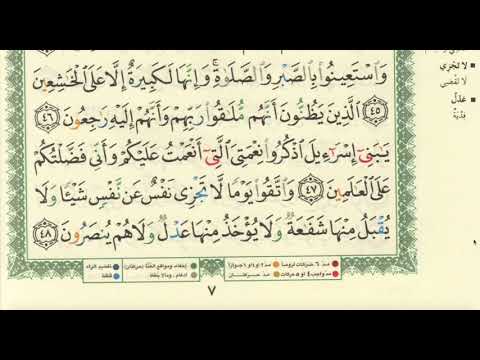 وَٱسْتَعِينُوا۟ بِٱلصَّبْرِ وَٱلصَّلَوٰةِ ۚ وَإِنَّهَا لَكَبِيرَةٌ إِلَّا عَلَى ٱلْخَـٰشِعِينَ
٤٥ ٱلَّذِينَ يَظُنُّونَ أَنَّهُم مُّلَـٰقُوا۟ رَبِّهِمْ وَأَنَّهُمْ إِلَيْهِ رَٰجِعُونَ ٤٦
يَـٰبَنِىٓ إِسْرَٰٓءِيلَ ٱذْكُرُوا۟ نِعْمَتِىَ ٱلَّتِىٓ أَنْعَمْتُ عَلَيْكُمْ وَأَنِّى فَضَّلْتُكُمْ
عَلَى ٱلْعَـٰلَمِينَ ٤٧ وَٱتَّقُوا۟ يَوْمًا لَّا تَجْزِى نَفْسٌ عَن نَّفْسٍ شَيْـًٔا وَلَا
يُقْبَلُ مِنْهَا شَفَـٰعَةٌ وَلَا يُؤْخَذُ مِنْهَا عَدْلٌ وَلَا هُمْ يُنصَرُونَ ٤٨
لا تَجْزِي
لا تقضي
عَدْلٌ
فِدْيَةٌ
مدّ ٦ حركات لزوماً مدّ ٢ أو ٤ أو ٦ جوازاً
مدّ واجب ٤ أو ٥ حركات مدّ حركتان
إخفاء، ومواقع الغُنَّة (حركتان) تفخيم الراء
إدغام، وما لا يُلفَظ قلقلة
٧